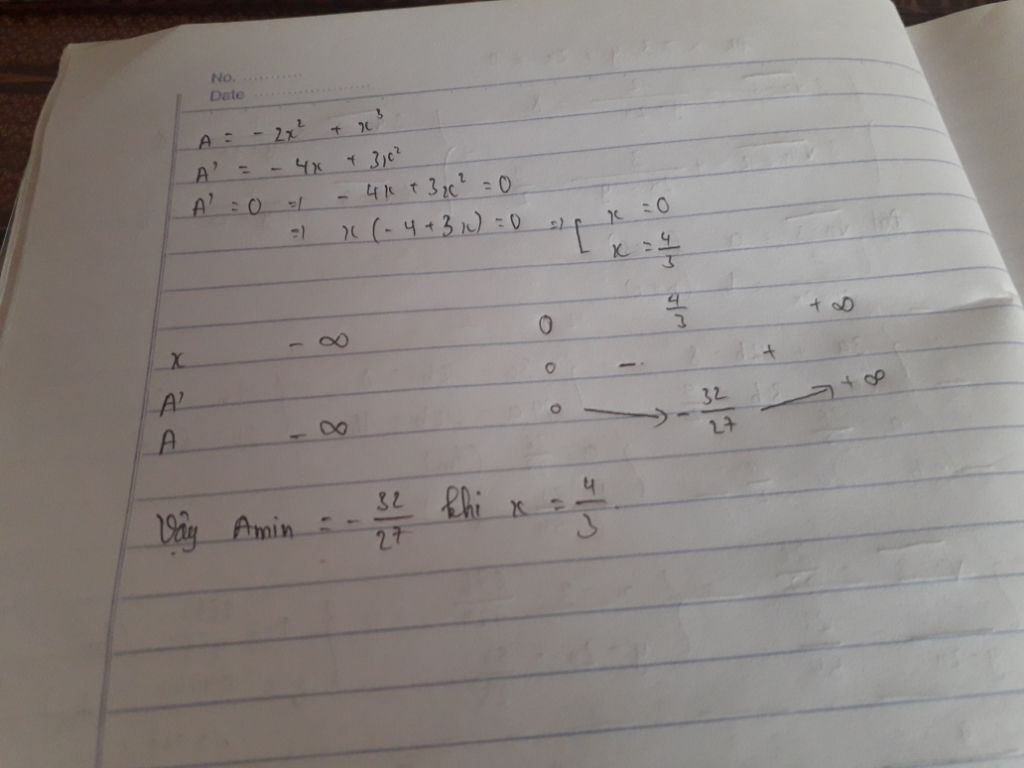 No. ............
Date ....................
A = - 2x² + x³
A' = - 4x + 3x²
A' = 0 => - 4x + 3x² = 0
=> x (- 4 + 3x) = 0 => [ x = 0
x = 4/3
x - ∞ 0 4/3 + ∞
A' 0 - +
A - ∞ 0 → - 32/27 → + ∞
Vậy Amin = - 32/27 khi x = 4/3.